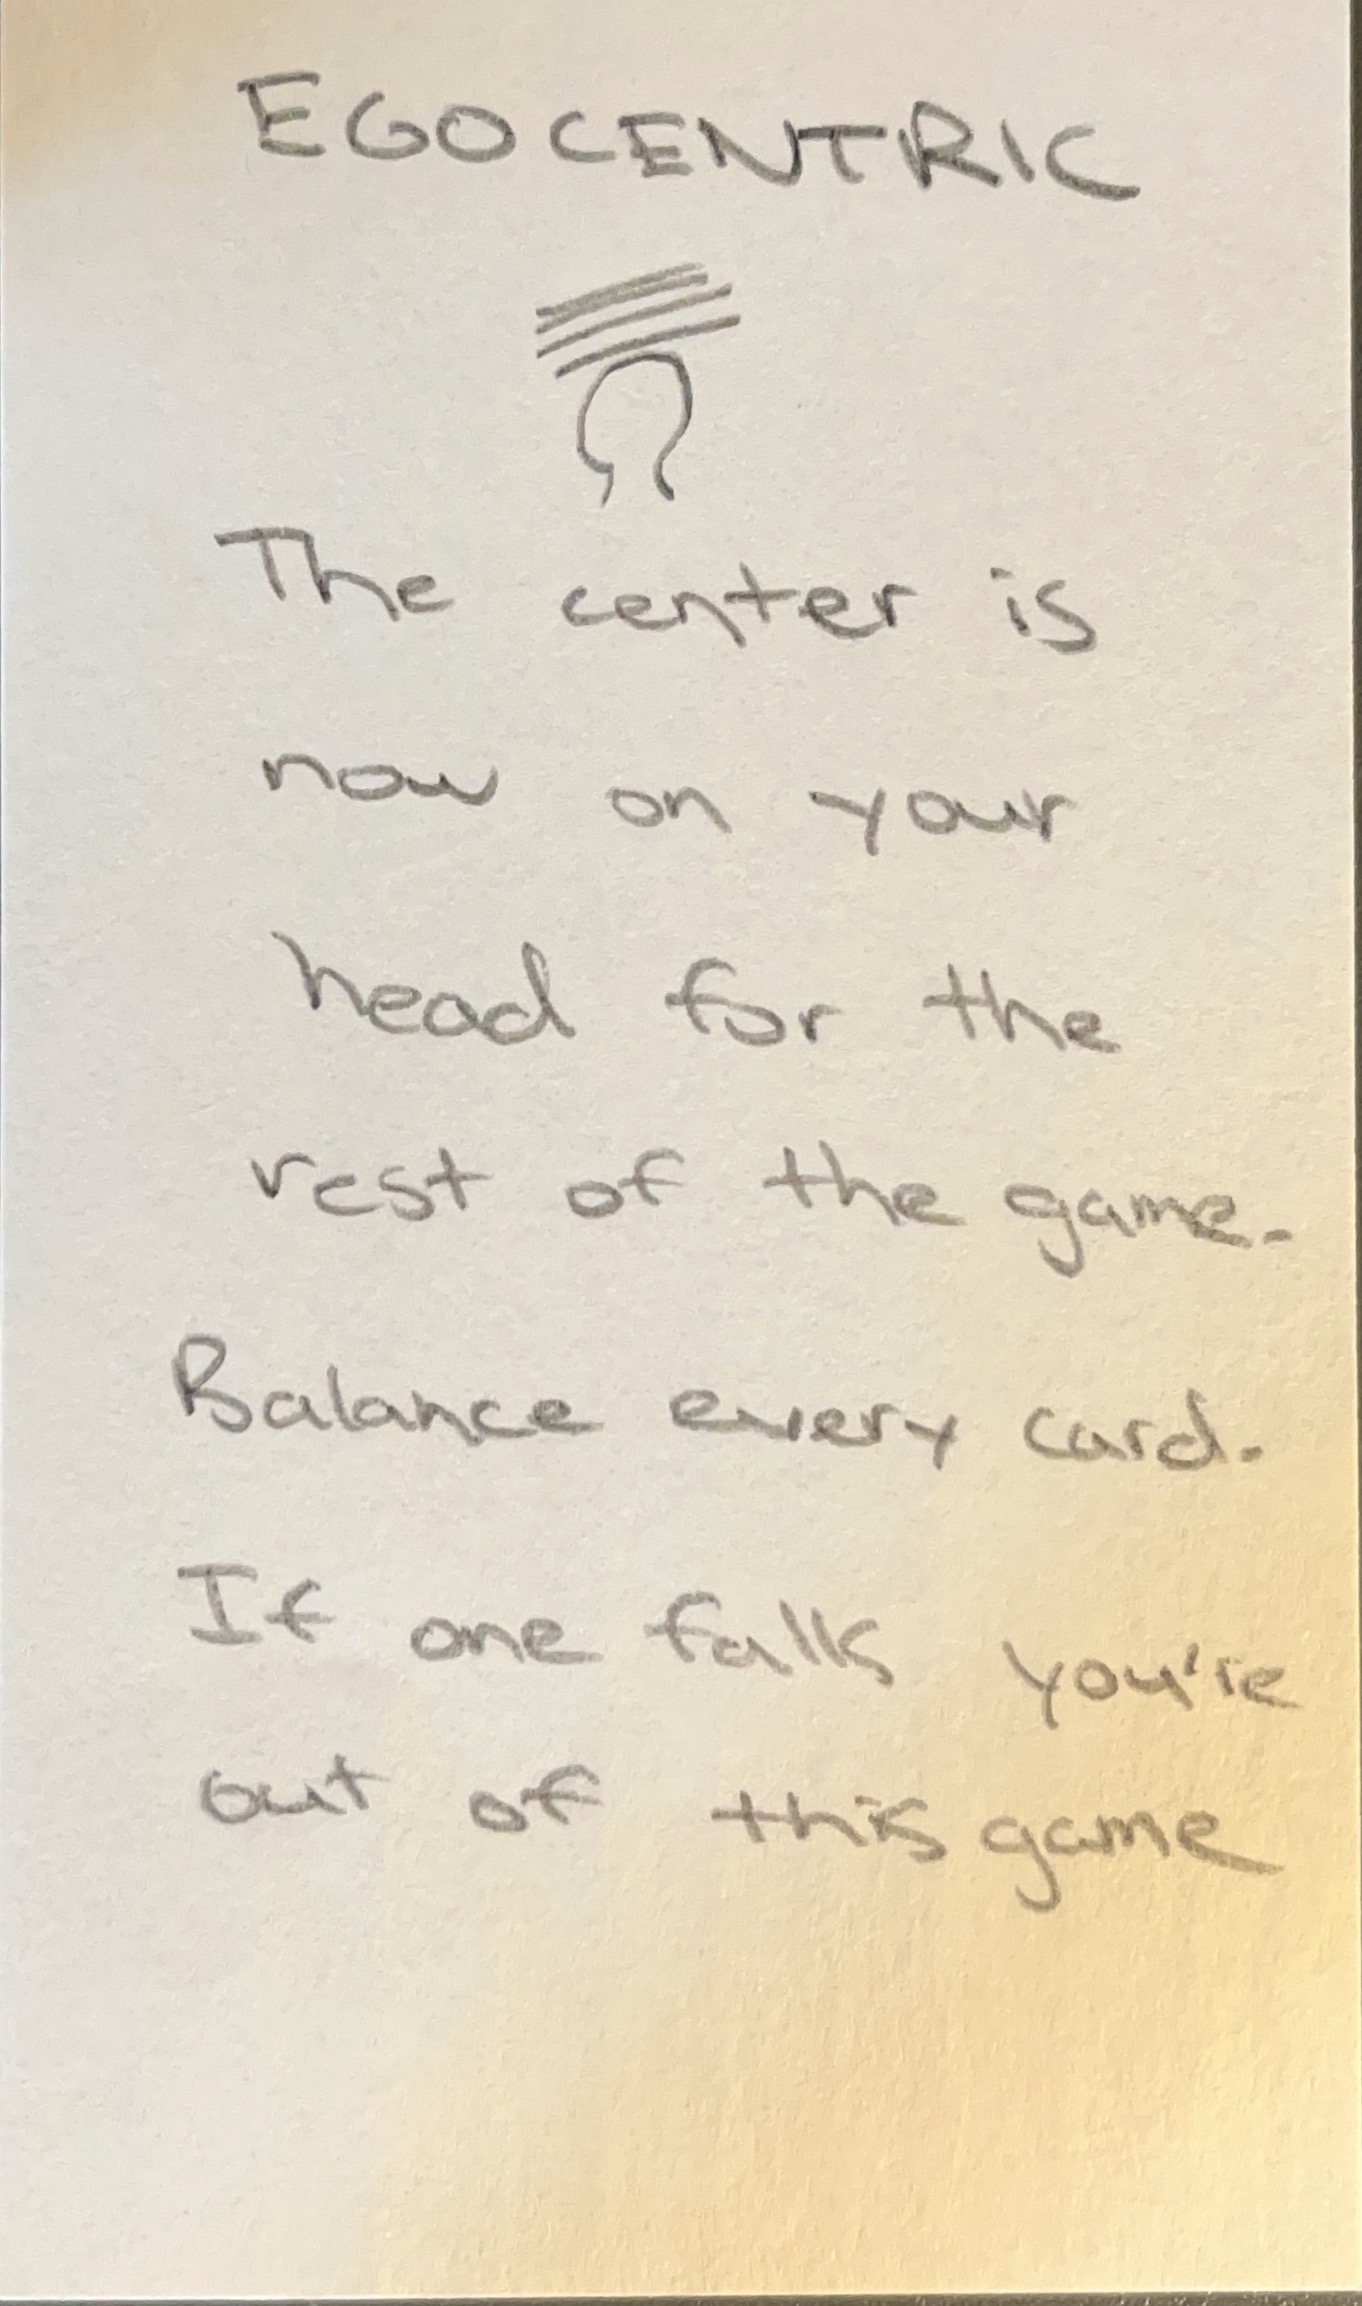 EGOCENTRIC
The center is
now on your
head for the
rest of the game.
Balance every card.
If one falls you're
out of this game